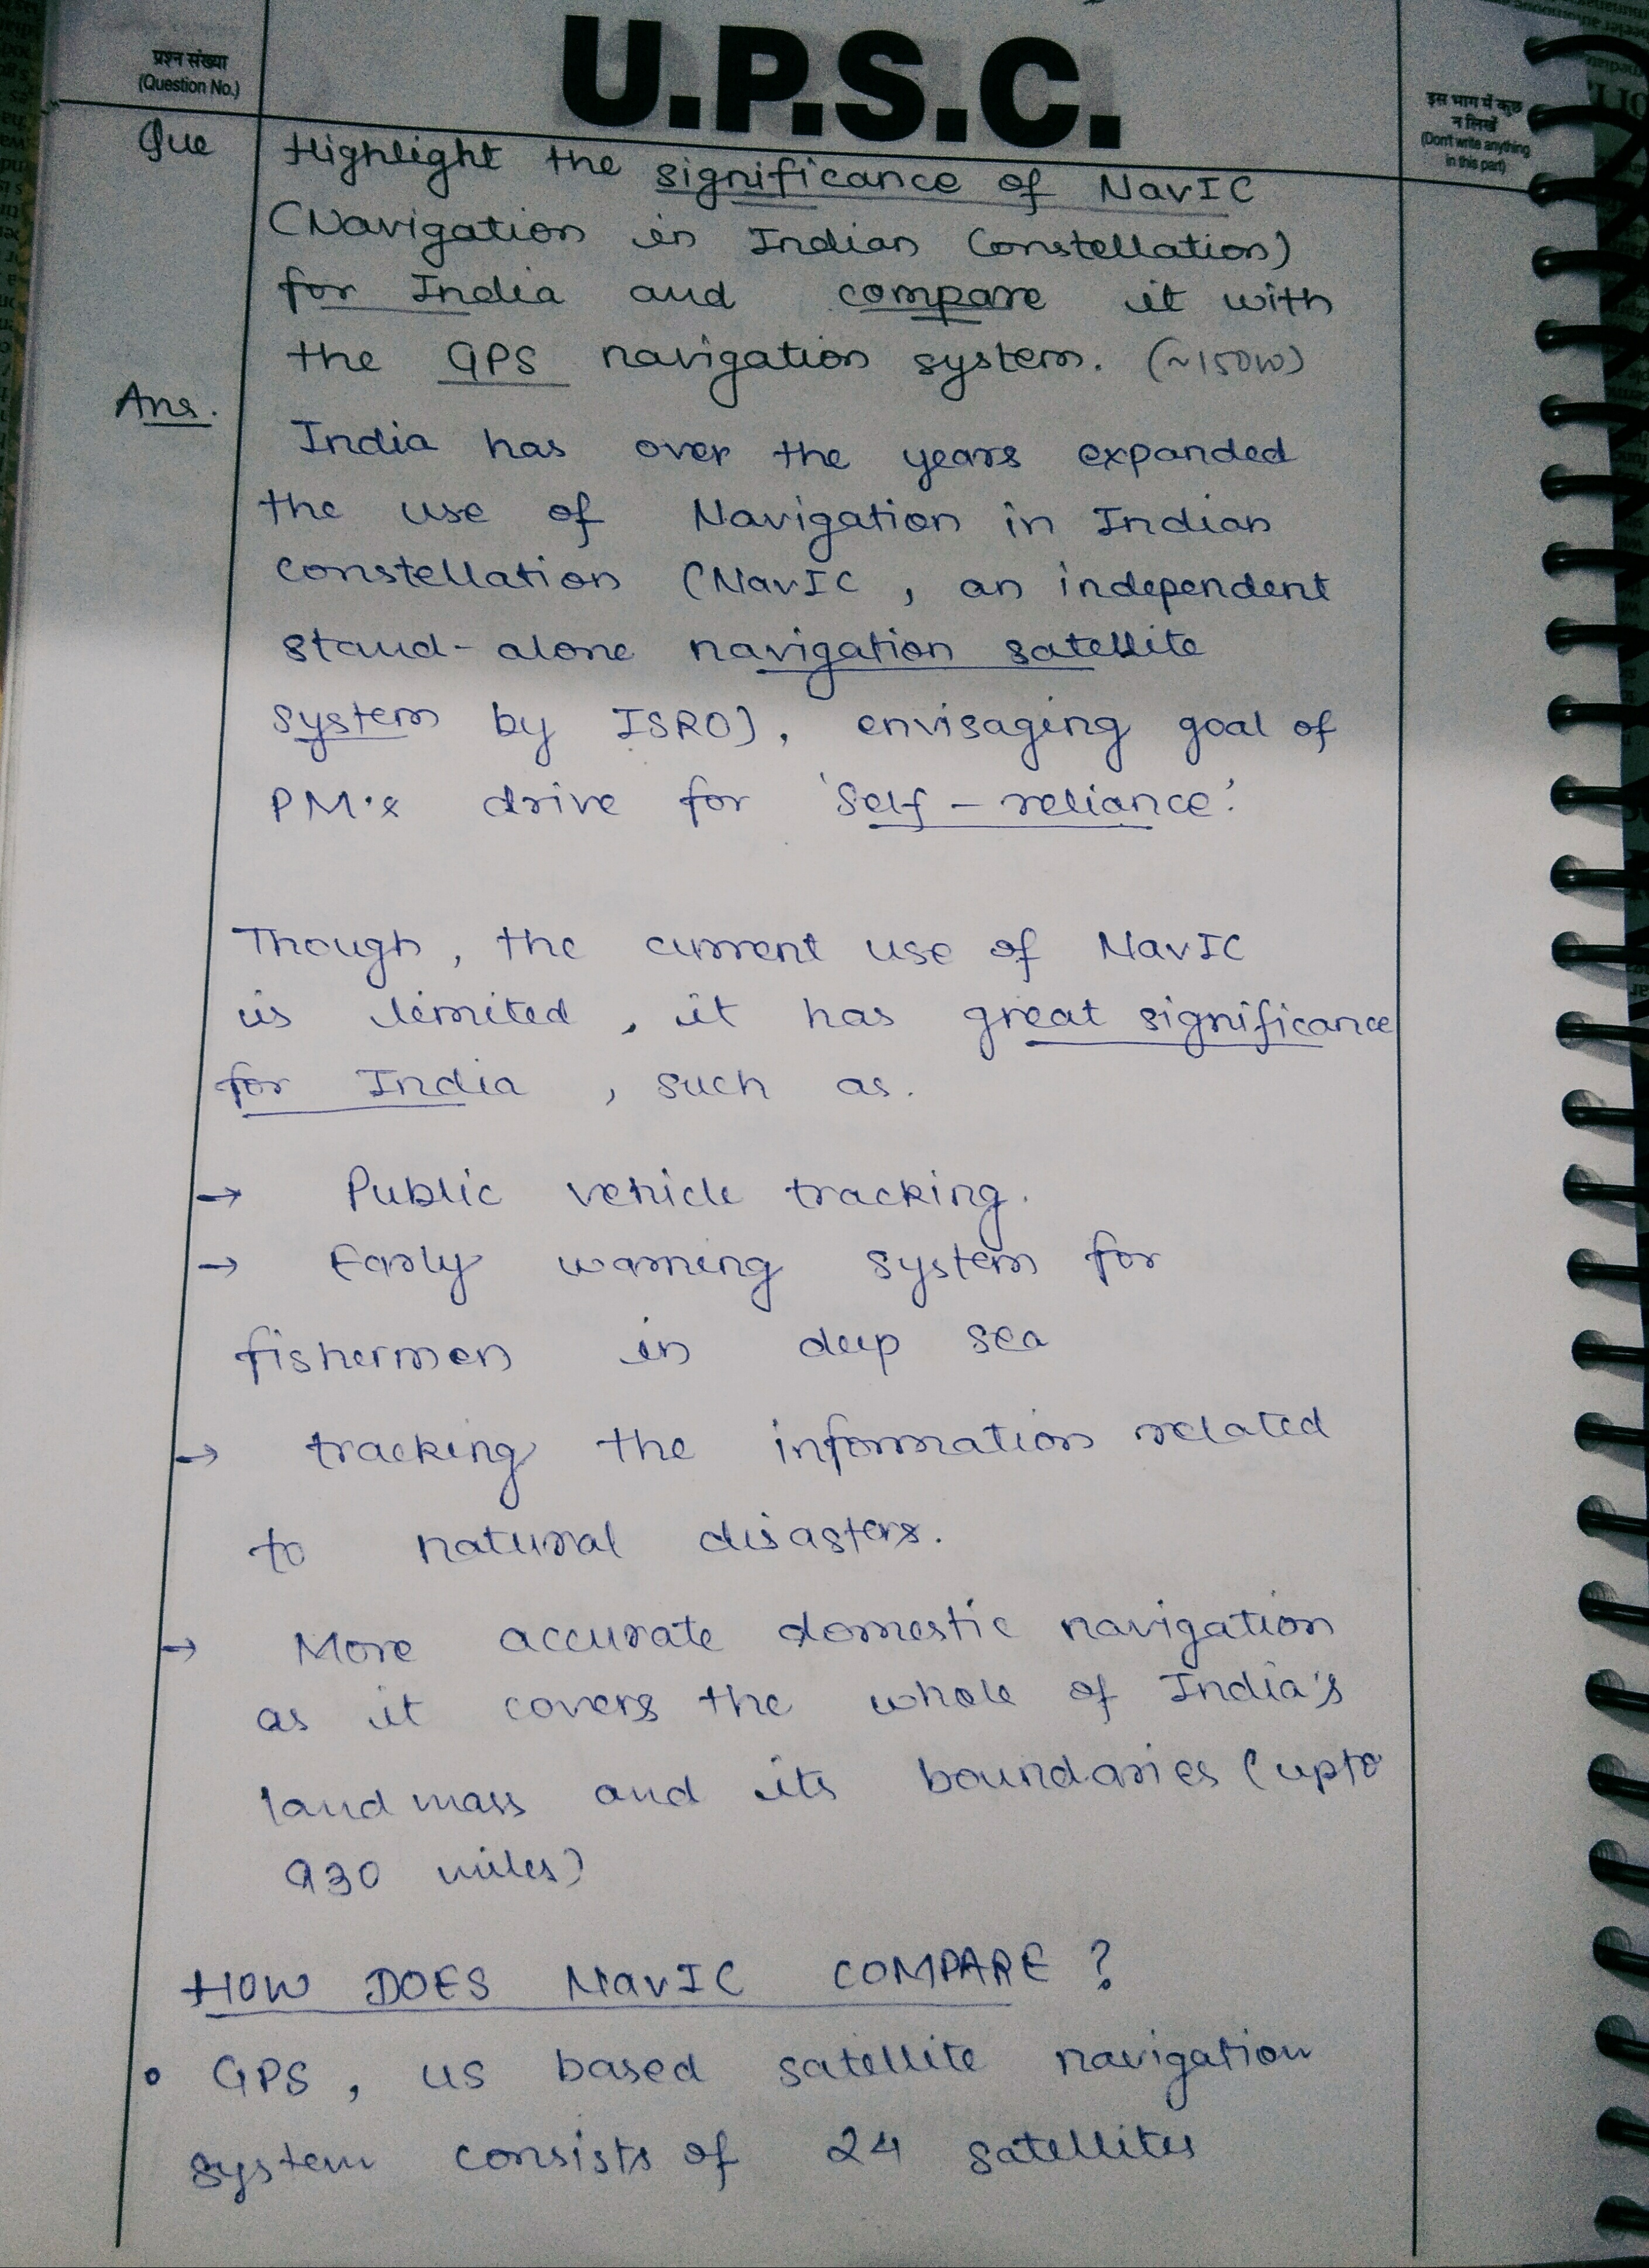 प्रश्न संख्या
(Question No.)
U.P.S.C.
इस भाग में कुछ
न लिखें
(Don't write anything
in this part)
Que Highlight the significance of NavIC
(Navigation in Indian Constellation)
for India and compare it with
the GPS navigation system. (~150W)
Ans.
India has over the years expanded
the use of Navigation in Indian
constellation (NavIC, an independent
stand-alone navigation satellite
system by ISRO), envisaging goal of
PM's drive for 'Self-reliance'.
Though, the current use of NavIC
is limited, it has great significance
for India, such as.
→ Public vehicle tracking.
→ Early warning system for
fishermen in deep sea
→ tracking the information related
to natural disasters.
→ More accurate domestic navigation
as it covers the whole of India's
land mass and its boundaries (upto
930 miles)
HOW DOES NavIC COMPARE?
• GPS, US based satellite navigation
system consists of 24 satellites